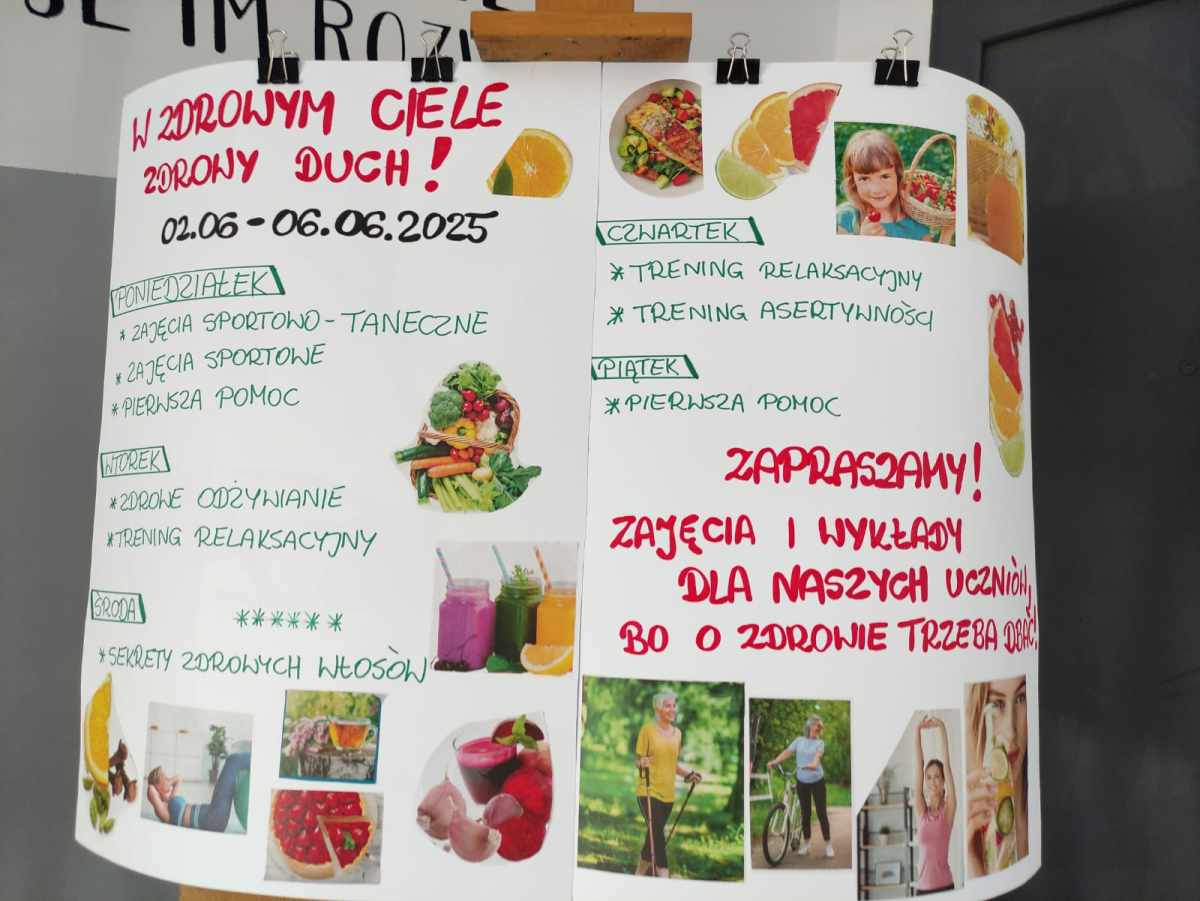 W ZDROWYM CIELE
ZDROWY DUCH!
02.06 - 06.06.2025
PONIEDZIAŁEK
* ZAJĘCIA SPORTOWO - TANECZNE
* ZAJĘCIA SPORTOWE
* PIERWSZA POMOC
WTOREK
* ZDROWE ODŻYWIANIE
* TRENING RELAKSACYJNY
ŚRODA
******
* SEKRETY ZDROWYCH WŁOSÓW
CZWARTEK
* TRENING RELAKSACYJNY
* TRENING ASERTYWNOŚCI
PIĄTEK
* PIERWSZA POMOC
ZAPRASZAMY!
ZAJĘCIA I WYKŁADY
DLA NASZYCH UCZNIÓW,
BO O ZDROWIE TRZEBA DBAĆ!